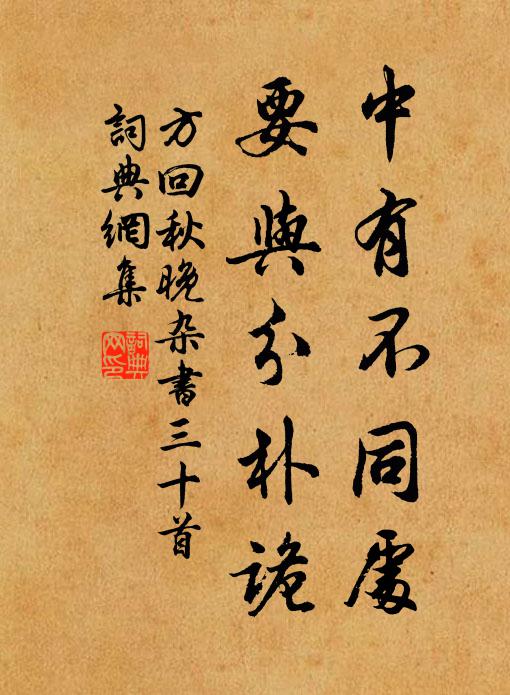 中有不同處
要與分朴詭
方回秋晚杂書三十首
詞典網集
詞典
网印